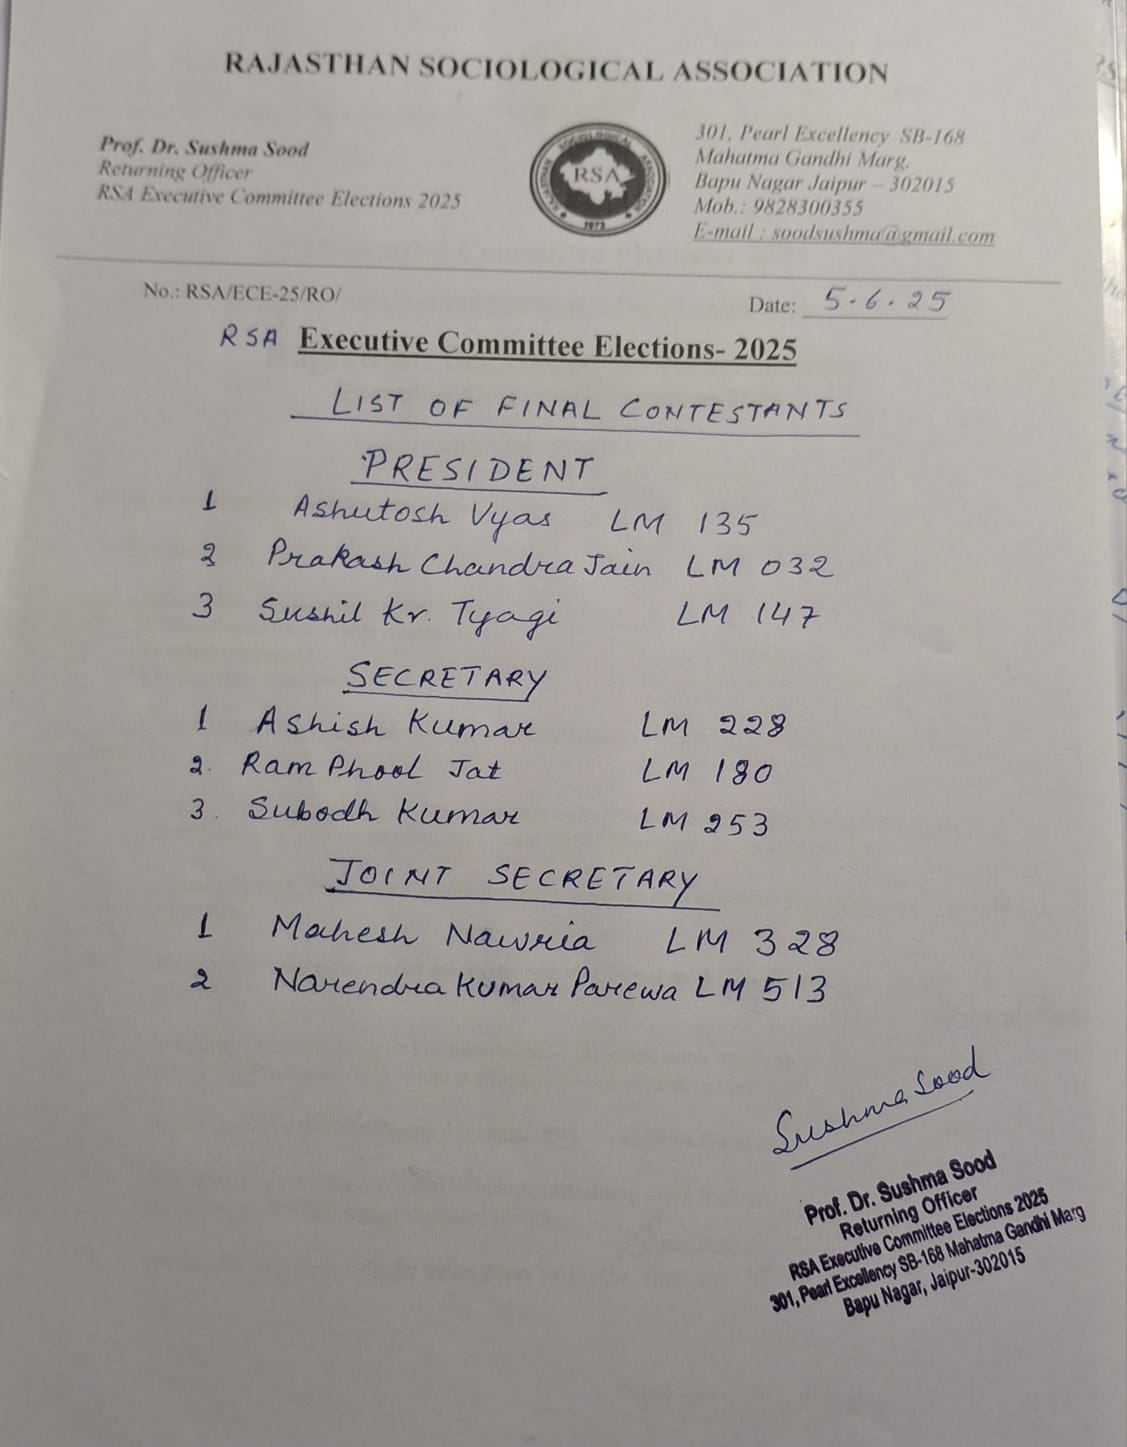 RAJASTHAN SOCIOLOGICAL ASSOCIATION
Prof. Dr. Sushma Sood
Returning Officer
RSA Executive Committee Elections 2025
RAJASTHAN SOCIOLOGICAL ASSOCIATION
RSA
1973
301, Pearl Excellency SB-168
Mahatma Gandhi Marg,
Bapu Nagar Jaipur – 302015
Mob.: 9828300355
E-mail : soodsushma@gmail.com
No.: RSA/ECE-25/RO/
Date: 5.6.25
RSA Executive Committee Elections- 2025
LIST OF FINAL CONTESTANTS
PRESIDENT
1 Ashutosh Vyas LM 135
2 Prakash Chandra Jain LM 032
3 Sushil Kr. Tyagi LM 147
SECRETARY
1 Ashish Kumar LM 228
2. Ram Phool Jat LM 180
3. Subodh Kumar LM 253
JOINT SECRETARY
1 Mahesh Nawria LM 328
2 Narendra Kumar Parewa LM 513
Sushma Sood
Prof. Dr. Sushma Sood
Returning Officer
RSA Executive Committee Elections 2025
301, Pearl Excellency SB-168 Mahatma Gandhi Marg
Bapu Nagar, Jaipur-302015